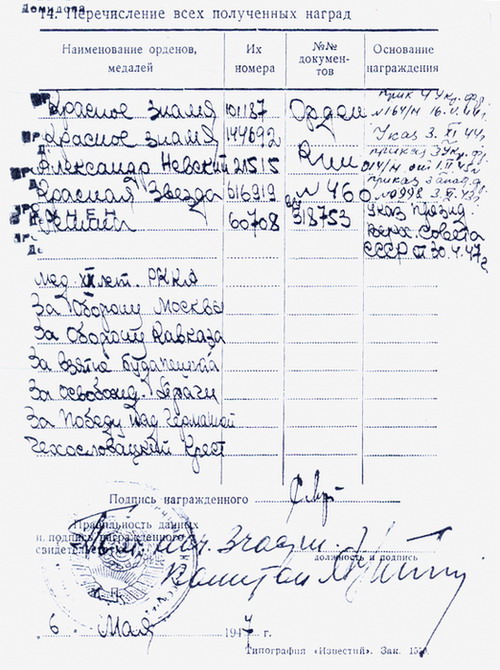 14. Перечисление всех полученных наград
Наименование орденов, медалей
Их номера
№№ документов
Основание награждения
Красное Знамя 101187 Орден прик 4 Укр. фр. №164/н 16.
Красное Знамя 144692 Указ 3. XI 44г.
Александр Невский 21515 приказ 3 Укр. фр.
Красная Звезда 616919 № 460 приказ
Ленин 60708 318753 Указ Презид. Верх. Совета СССР от 30.4.47г
мед. лет. РККА
За Оборону Москвы
За Оборону Кавказа
За взятие Будапешта
За освобожд. Праги
За Победу над Германией
Чехословацкий Крест
Подпись награжденного
Правильность данных
и подпись награжденного
свидетельствую
Капитан
должность и подпись
М. П.
6 Мая 1947 г.
Типография «Известий». Зак.